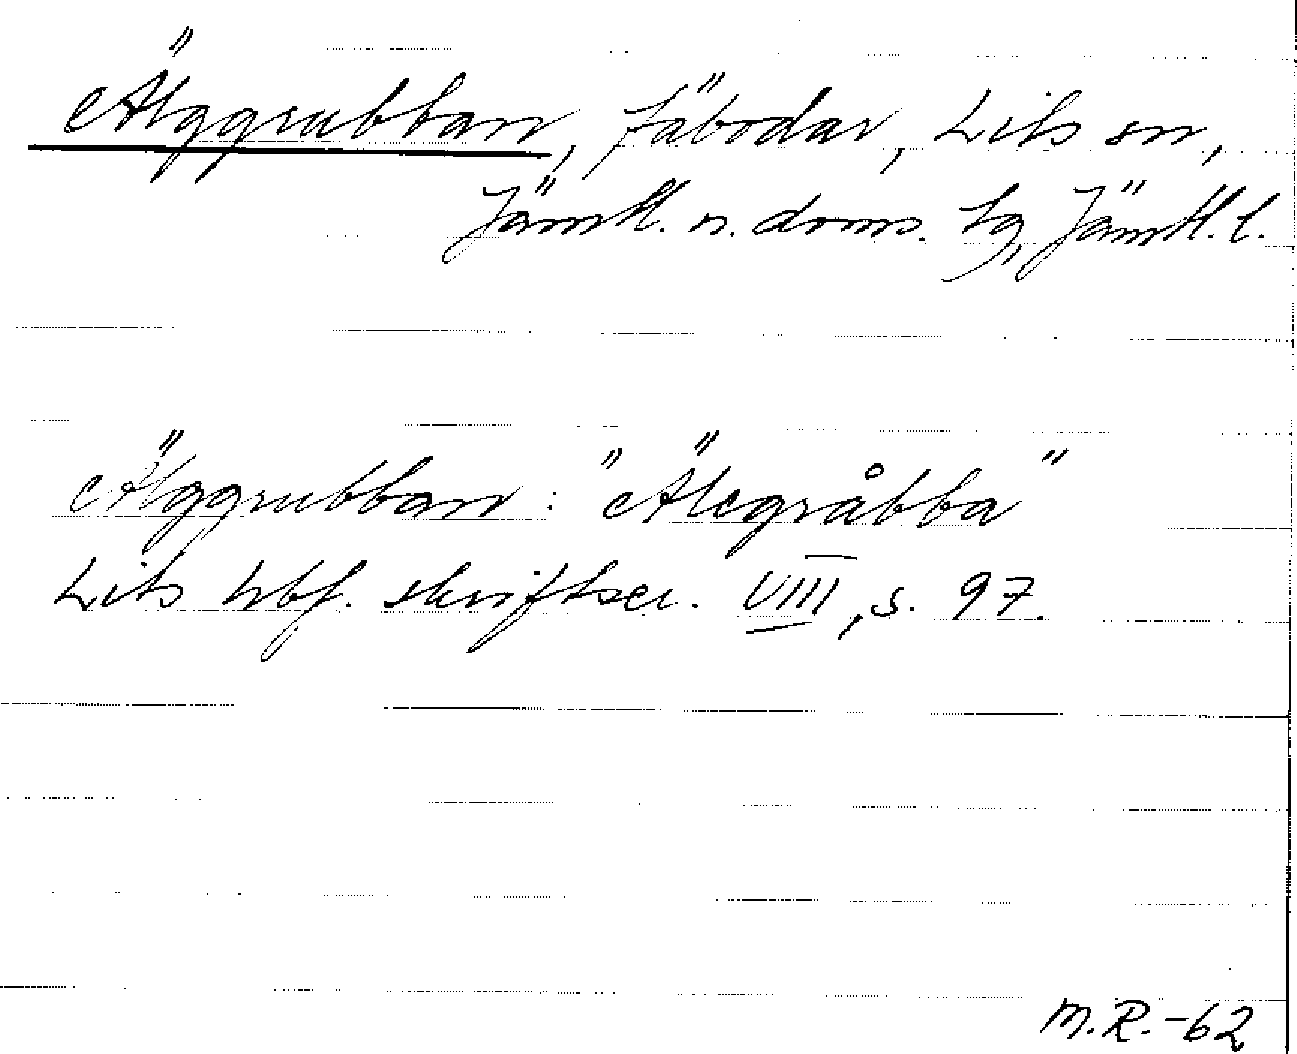 Älggrubban, fäbodar, Lits sn,
Jämtl. n. doms. tg, Jämtl. l.
Älggrubban: "Älegråbba"
Lits hbf. skriftser. VIII, s. 97.
M.R.-62